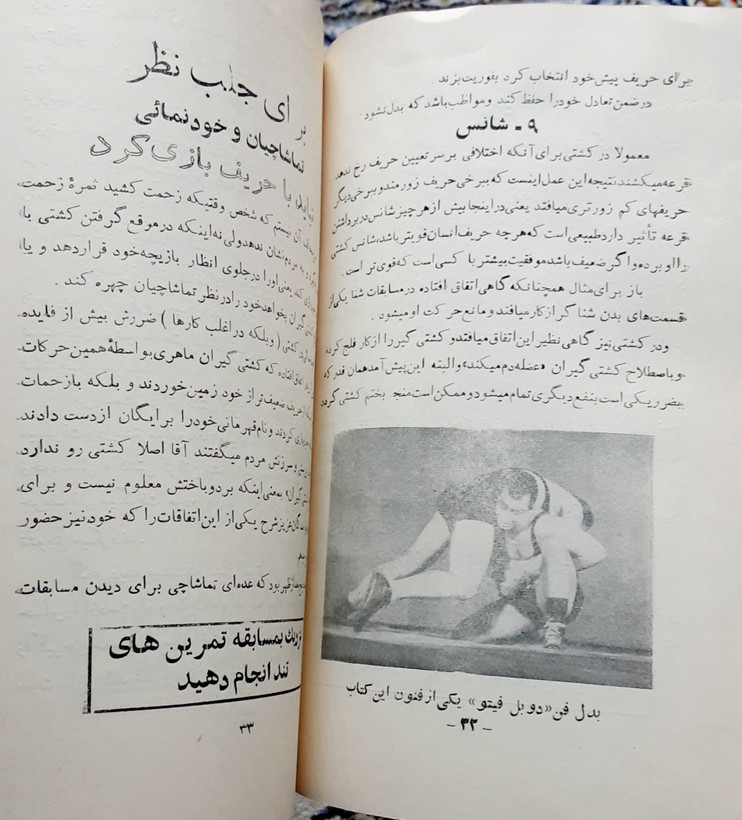 برای حریف پیش خود انتخاب کرد بفوریت بزند.
درضمن تعادل خودرا حفظ کند ومواظب باشد که بدل نشود.
۹ - شانس
معمولا در کشتی برای آنکه اختلافی بر سر تعیین حریف رخ ندهد
قرعه میکشند نتیجه این عمل اینست که ببرخی حریف زورمند و ببرخی دیگر
حریفهای کم زورتری میافتد یعنی در اینجا بیش از هر چیز شانس در برداشتن
قرعه تأثیر دارد طبیعی است که هرچه حریف انسان قویتر باشد، شانس کشتی
را او برده و اگر ضعیف باشد موفقیت بیشتر با کسی است که قوی تر است.
باز برای مثال همچنانکه گاهی اتفاق افتاده در مسابقات شنا یکی از
قسمت‌های بدن شناگر از کار میافتد و مانع حرکت او میشود.
ودر کشتی نیز گاهی نظیر این اتفاق میافتد و کشتی گیر را از کار فلج کرده
و باصطلاح کشتی گیران «عضله دم میکند» و البته این پیش آمد همان قدر که
بضرر یکی است بنفع دیگری تمام میشود و ممکن است منجر بختم کشتی گردد
بدل فن «دوبل فیتو» یکی از فنون این کتاب
- ۳۲ -
برای جلب نظر
تماشاچیان و خودنمائی
نباید با حریف بازی کرد
آن نیستم که شخص وقتیکه زحمت کشید ثمرهٔ زحمت
مردم نشان ندهد ولی نه اینکه در موقع گرفتن کشتی با
یعنی اورا در جلوی انظار بازیچه خود قرار دهد و یا
گیران بخواهد خود را در نظر تماشاچیان چهره کند.
کشتی (وبلکه در اغلب کارها) ضررش بیش از فایده
اتفاق افتاده که کشتی گیران ماهری بواسطهٔ همین حرکات
حریف ضعیف‌تر از خود زمین خوردند و بلکه بازحمات
کردند و نام قهرمانی خود را برایگان از دست دادند
وسرزنش مردم میگفتند آقا اصلا کشتی رو ندارد
گیران» بمعنی اینکه برد و باختش معلوم نیست و برای
عزیز شرح یکی از این اتفاقات را که خود نیز حضور
ظهر بود که عده‌ای تماشاچی برای دیدن مسابقات
نزدیک بمسابقه تمرین های
تند انجام دهید
۳۳